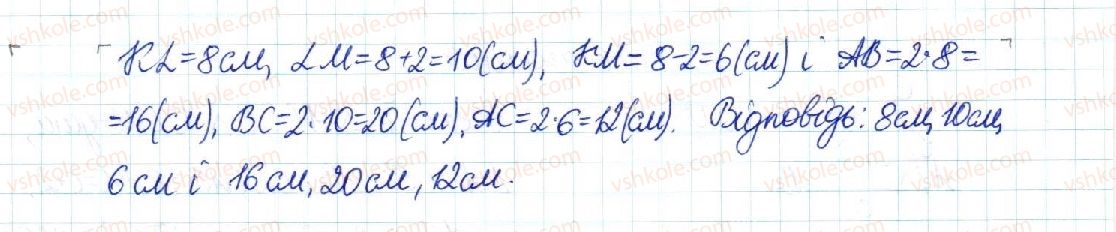 KL=8см, LM=8+2=10(см), KM=8-2=6(см) і AB=2·8=
=16(см), BC=2·10=20(см), AC=2·6=12(см). Відповідь: 8см, 10см,
6см і 16см, 20см, 12см.